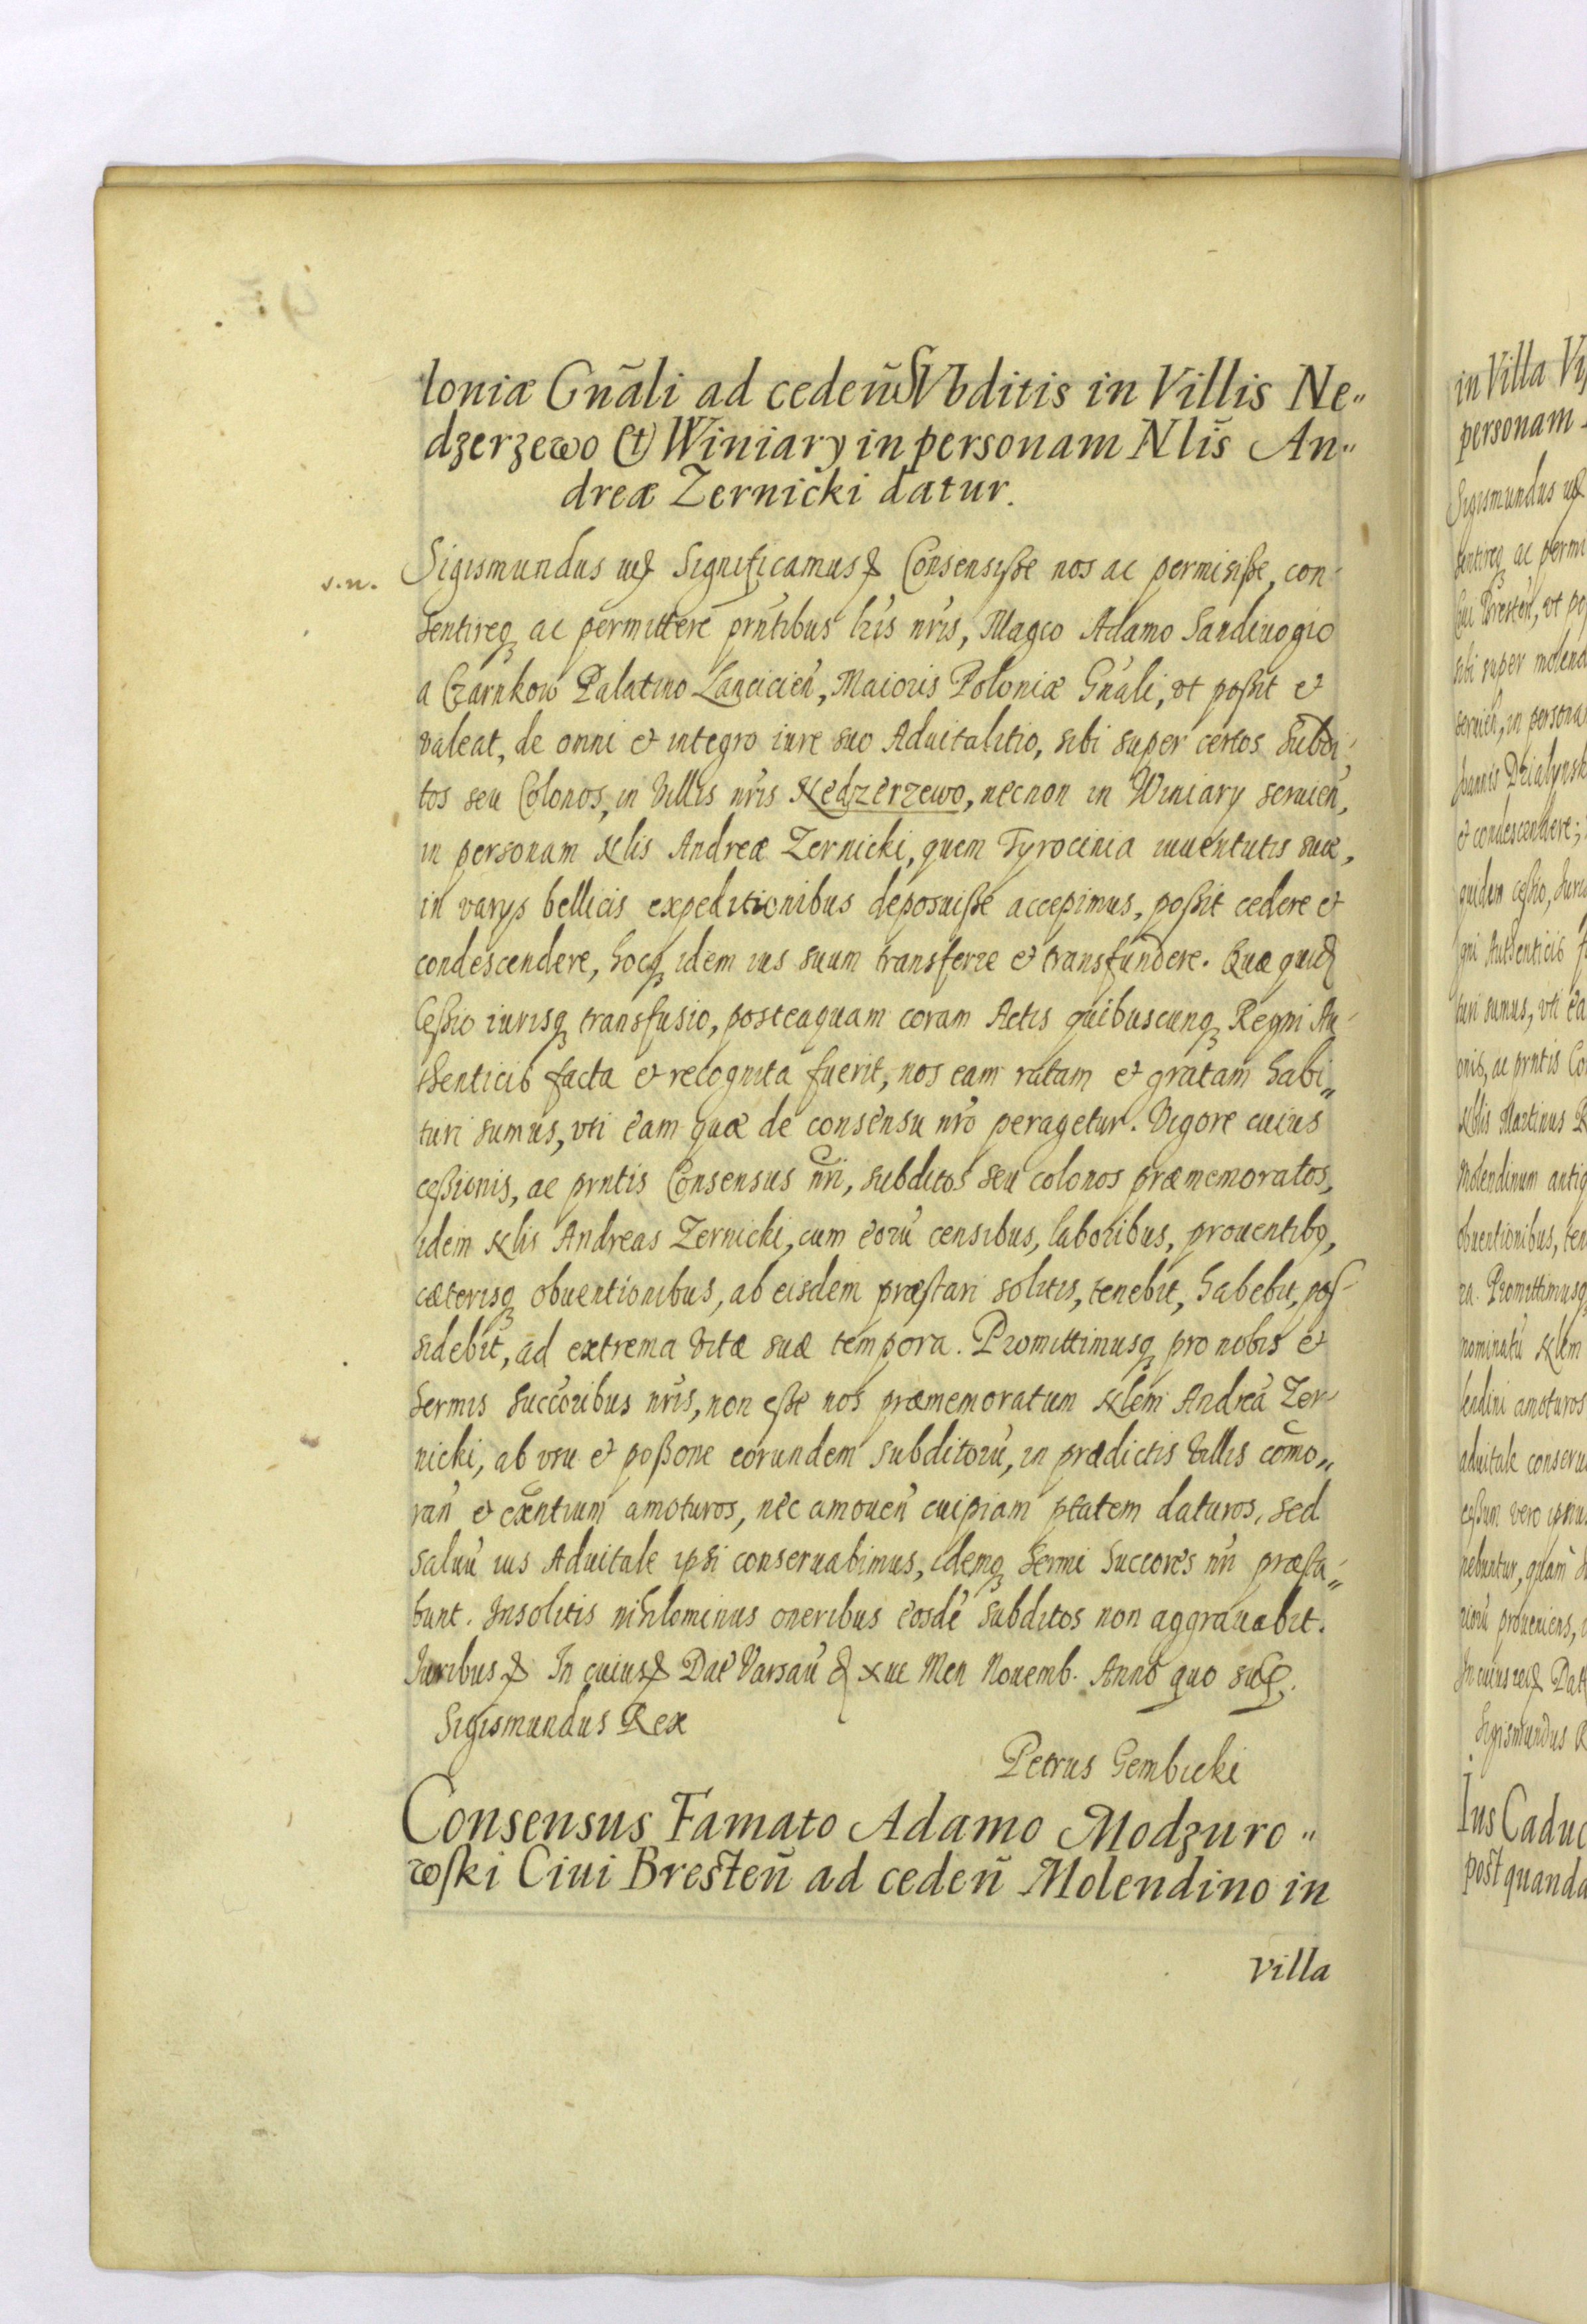 loniæ Gñali ad cedeñ SVbditis in Villis Ne„
dzerzewo Et Winiary in personam Nlis An„
dreæ Zernicki datur.
s.n.
Sigismundus ut Significamus Consensisse nos ac permisisse, con-
sentireq ac permittere prñtibus lris nris, Magco Adamo Sandiuogio
a Czarnkow Palatino Lancicieñ, Maioris Poloniæ Gñali, vt possit et
valeat, de omni et integro iure suo Aduitalitio, sibi super certos Subdi-
tos seu Colonos, in Villis nris Nedzerzewo, necnon in Winiary seruieñ,
in personam Nlis Andreæ Zernicki, quem Tyrocinia iuuentutis suæ,
in varys bellicis expeditionibus deposuisse accepimus, possit cedere et
condescendere, hocq idem ius suum transferre et transfundere. Quæ quid
Cessio iurisq transfusio, posteaquam coram Actis quibuscunq Regni Au-
thenticis facta et recognita fuerit, nos eam ratam et gratam habi„
turi sumus, vti eam quæ de consensu nro peragetur. Vigore cuius
cessionis, ac prntis Consensus nri, subditos seu colonos præmemoratos,
idem Nlis Andreas Zernicki, cum eorũ censibus, laboribus, prouentibq,
cæterisq obuentionibus, ab eisdem præstari solitis, tenebit, habebit, pos-
sidebit, ad extrema vitæ suæ tempora. Promittimusq pro nobis et
Sermis Succoribus nris, non esse nos præmemoratum Nlem Andreã Zer-
nicki, ab vsu et possone eorundem subditorũ, in prædictis Villis cõmo„
rañ et exñtium amoturos, nec amoueñ cuipiam ptatem daturos, sed
saluũ ius Aduitale ipsi conseruabimus, idemq Sermi Succores nri præsta„
bunt. Insolitis nihlominus oneribus eosdẽ subditos non aggrauabit.
Iuribus In cuius Dat Varsau d xvi Men Nouemb. Anno quo sup.
Sigismundus Rex
Petrus Gembicki
Consensus Famato Adamo Modzuro„
wski Ciui Bresteñ ad cedeñ Molendino in
villa
in Villa
personam
Sigismundus
sentireq ac permi
Ciui Bresteñ, vt po
sibi super molend
seruieñ, in persona
hannis Dzialynsk
et condescendere;
quidem cessio, Iuris
gni Autenticis f
turi sumus, vti ea
onis, ac prntis Co
Nlis Martinus
Molendinum antiq
obuentionibus, ten
ra. Promittimusq
nominatũ Nlem
lendini amoturos
aduitale conseru
cessum vero ipsius
nebuntur, quam
niorũ proueniens,
In cuius rei Dat
Sigismundus R
Ius Caduc
post quanda